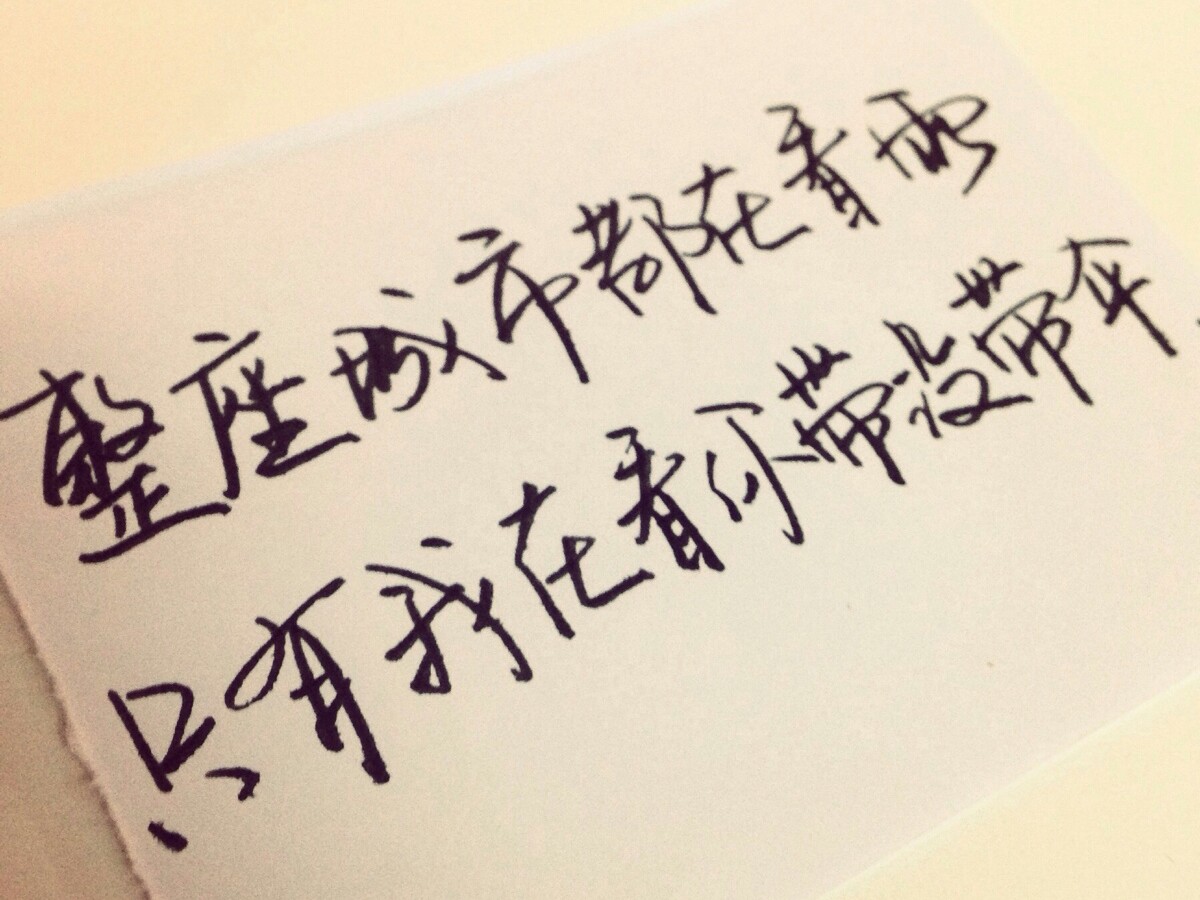 整座城市都在看雪
只有我在看你带没带伞